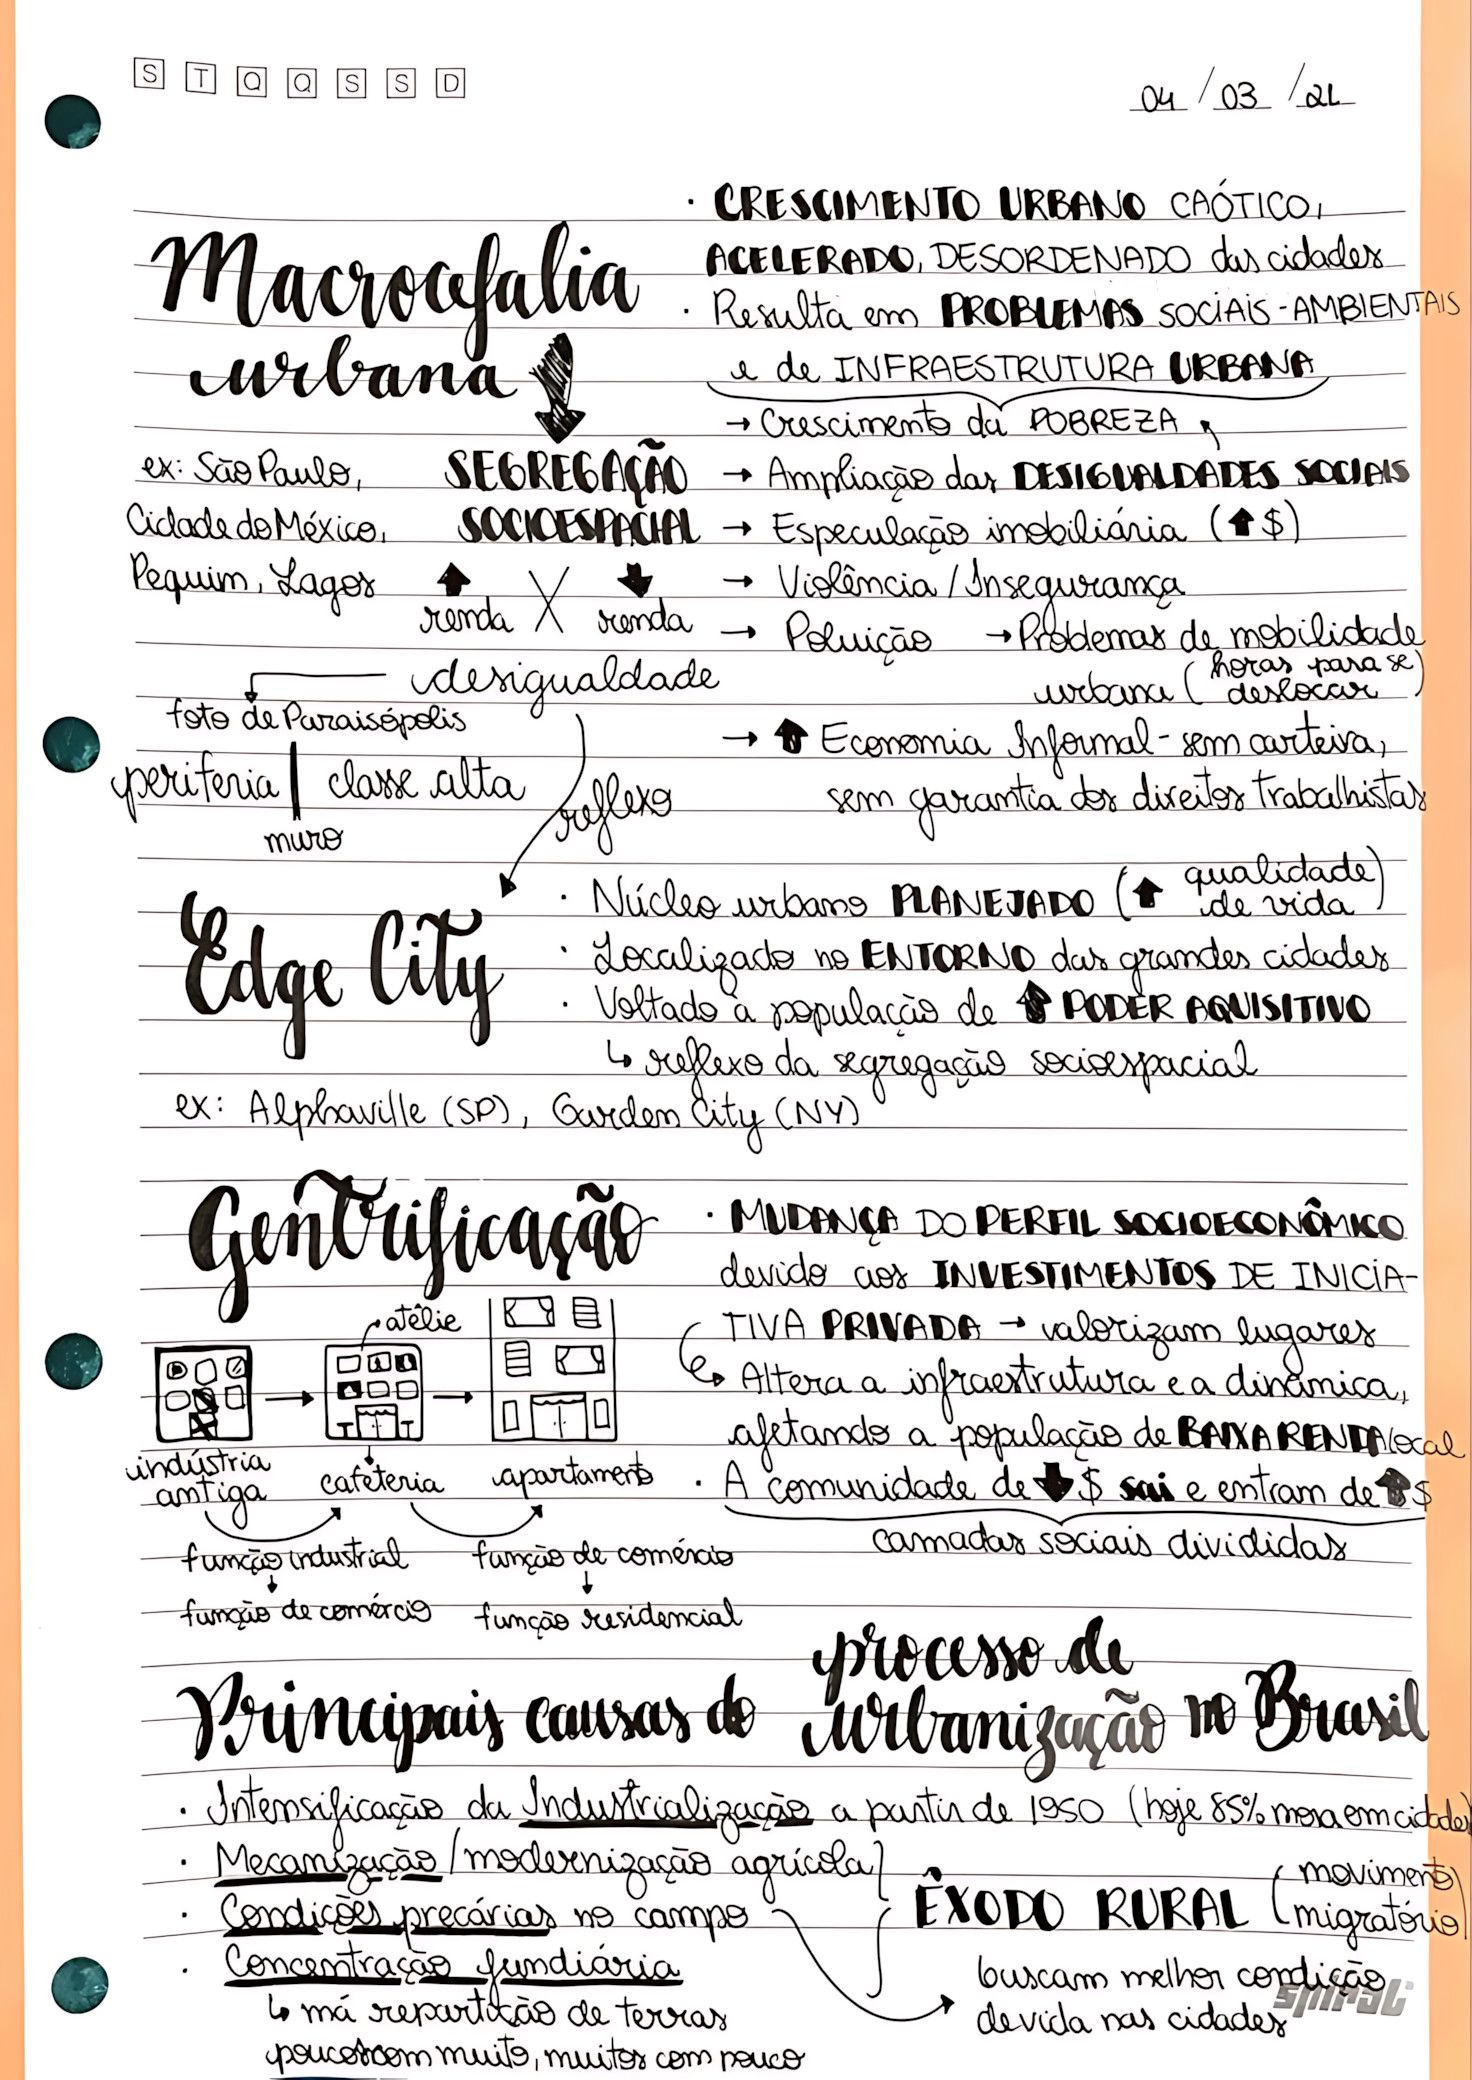 S T Q Q S S D
04 / 03 / 21
Macrocefalia
urbana
· CRESCIMENTO URBANO CAÓTICO,
ACELERADO, DESORDENADO das cidades
· Resulta em PROBLEMAS SOCIAIS-AMBIENTAIS
e de INFRAESTRUTURA URBANA
→ Crescimento da POBREZA
→ Ampliação das DESIGUALDADES SOCIAIS
→ Especulação imobiliária (⬆$)
→ Violência / Insegurança
→ Poluição → Problemas de mobilidade
urbana (horas para se
deslocar)
→ ⬆ Economia Informal - sem carteira,
sem garantia dos direitos trabalhistas
ex: São Paulo,
Cidade do México,
Pequim, Lagos
SEGREGAÇÃO
SOCIOESPACIAL
⬆ X ⬇
renda renda
desigualdade
foto de Paraisópolis
periferia | classe alta
muro
reflexo
Edge City
· Núcleo urbano PLANEJADO (⬆ qualidade
de vida)
· Localizado no ENTORNO das grandes cidades
· Voltado à população de ⬆ PODER AQUISITIVO
↳ reflexo da segregação socioespacial
ex: Alphaville (SP), Garden City (NY)
Gentrificação
· MUDANÇA DO PERFIL SOCIOECONÔMICO
devido aos INVESTIMENTOS DE INICIA-
TIVA PRIVADA → valorizam lugares
↳ Altera a infraestrutura e a dinâmica,
afetando a população de BAIXA RENDA local
· A comunidade de ⬇$ sai e entram de ⬆$
camadas sociais divididas
atêlie
indústria
antiga
cafeteria
apartamento
função industrial
↓
função de comércio
função de comércio
↓
função residencial
Principais causas do processo de
urbanização no Brasil
· Intensificação da Industrialização a partir de 1950 (hoje 85% mora em cidade)
· Mecanização / modernização agrícola
· Condições precárias no campo
· Concentração fundiária
↳ má repartição de terras
poucos com muito, muitos com pouco
ÊXODO RURAL (movimento
migratório)
buscam melhor condição
de vida nas cidades
spiral